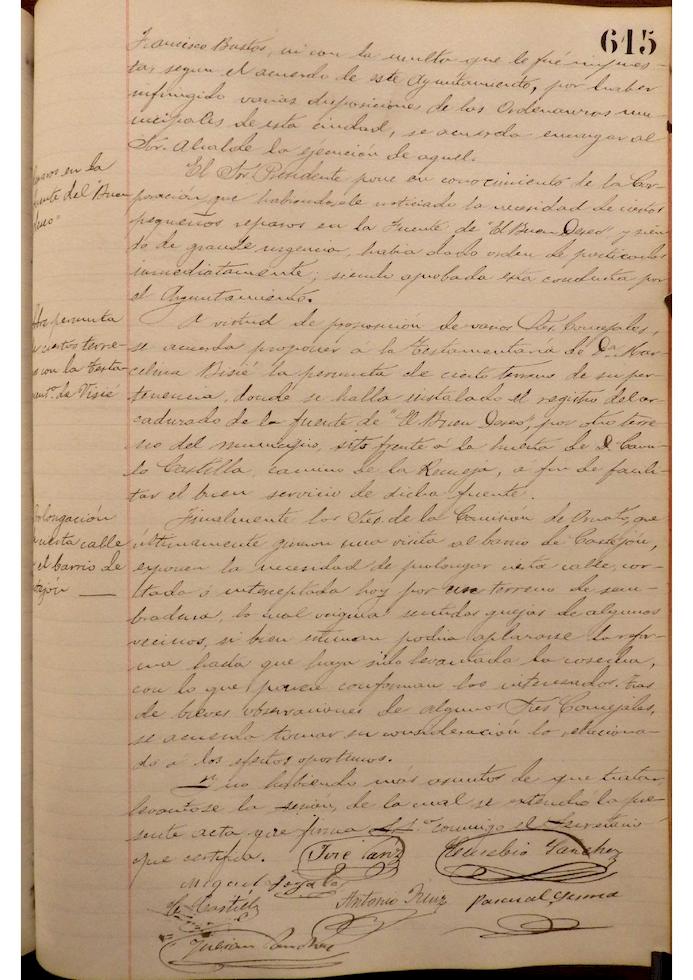 615
Francisco Bustos, ni con la multa que le fué impues-
ta, segun el acuerdo de este Ayuntamiento, por haber
infringido varias disposiciones de las Ordenanzas mu-
nicipales de esta ciudad, se acuerda encargar al
Sor. Alcalde la ejecución de aquel.
en la
del "Buen
Deseo"
El Sor. Presidente pone en conocimiento de la Cor-
poración, que habiendosele noticiado la necesidad de ciertos
pequeños reparos en la Fuente de "El Buen Deseo" y sien-
do de grande urgencia, había dado orden de practicarlos
inmediatamente; siendo aprobada esta conducta por
el Ayuntamiento.
permuta
ciertos terre-
con la testa-
de Visié
A virtud de proposición de varios Sres. Concejales,
se acuerda proponer á la testamentaría de Dª. Mar-
celina Visié la permuta de cierto terreno de su per-
tenencia, donde se halla instalado el registro del ar-
cadurado de la fuente de "El Buen Deseo", por otro terre-
no del municipio, sito frente á la huerta de D. Cami-
lo Castilla, camino de la, a fin de facili-
tar el buen servicio de dicha fuente.
Prolongación
calle
el barrio de
Finalmente los Sres. de la Comisión de Ornato, que
últimamente giraron una visita al barrio de Castejón,
exponen la necesidad de prolongar cierta calle, cor-
tada ó interceptada hoy por un terreno de sem-
bradura, lo cual origina sentidas quejas de algunos
vecinos, si bien estiman podría aplazarse la refor-
ma hasta que haya sido levantada la cosecha,
con lo que parece conforman los interesados. Tras
de breves observaciones de algunos Sres Concejales,
se acuerda tomar en consideración lo relaciona-
do a los efectos oportunos.
Y no habiendo más asuntos de que tratar,
levantose la sesión, de la cual se extendió la pre-
sente acta que firma S.Sª. conmigo el Secretario
que certifica.
Eusebio Sanchez
Miguel
Castilla
Antonio
Pascual
Julian Sanchez